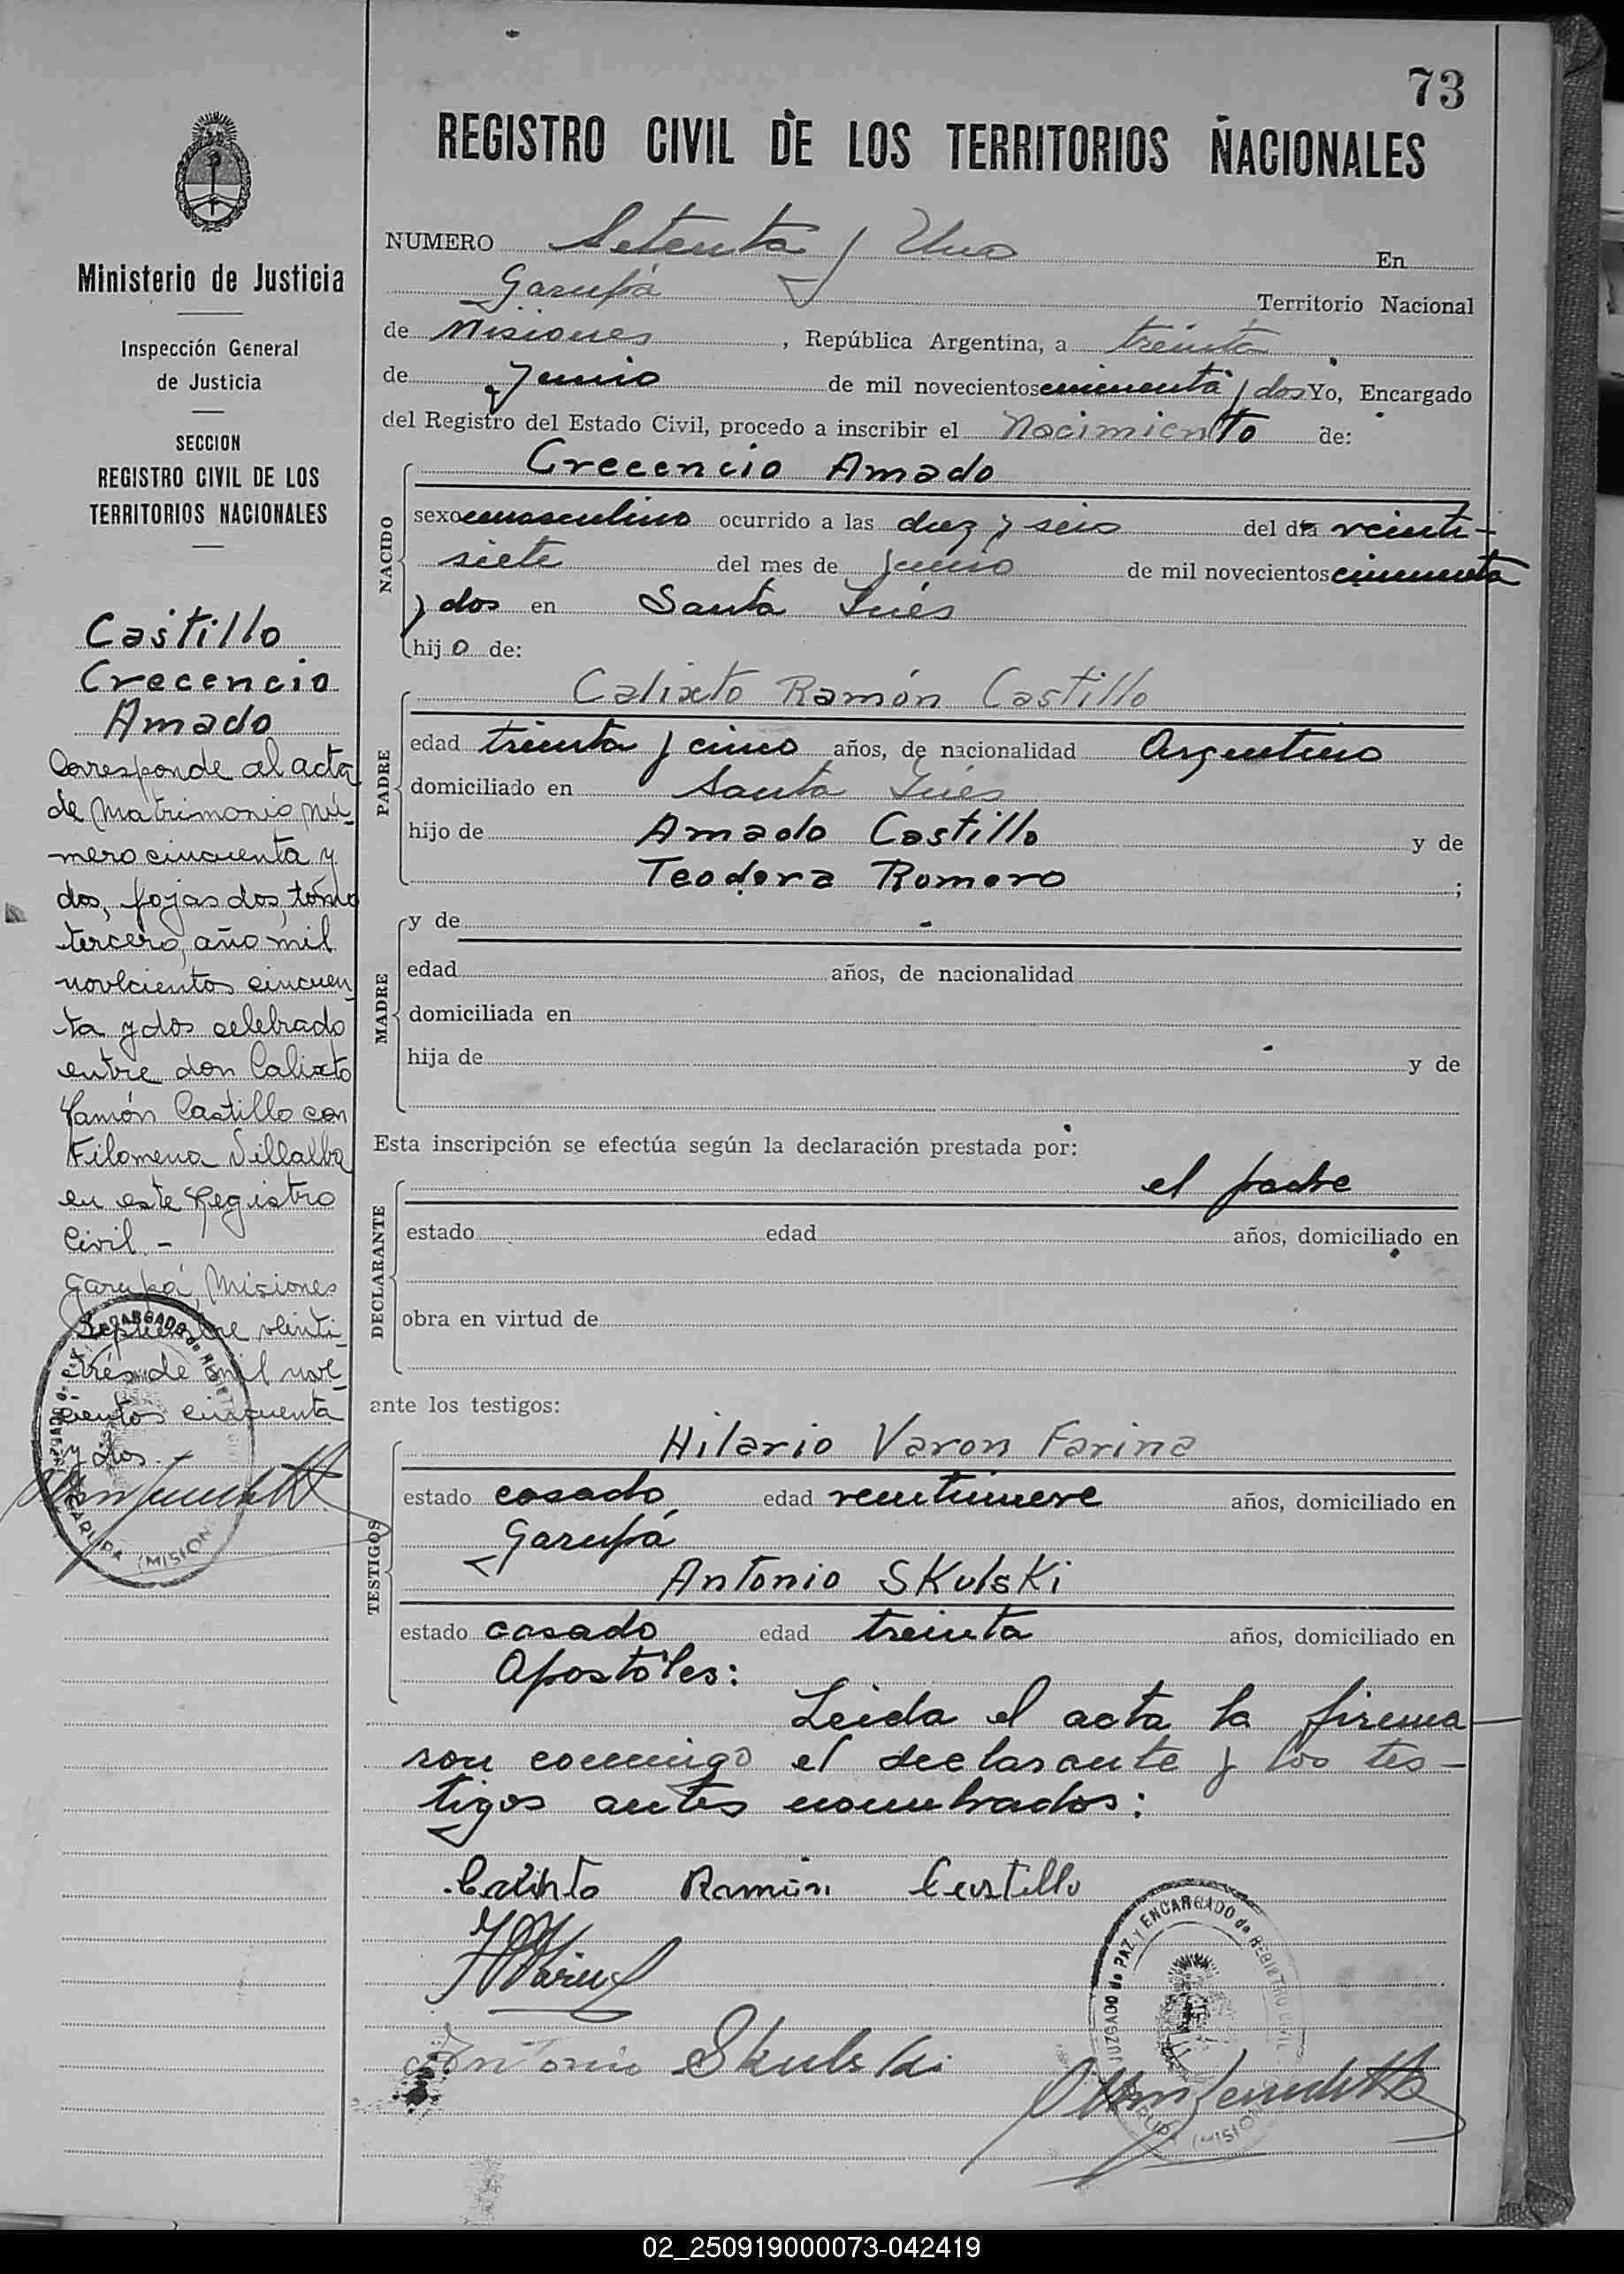 73
REGISTRO CIVIL DE LOS TERRITORIOS NACIONALES
Ministerio de Justicia
Inspección General
de Justicia
SECCION
REGISTRO CIVIL DE LOS
TERRITORIOS NACIONALES
Castillo
Crecencio
Amado
Corresponde al acta
de Matrimonio nú-
mero cincuenta y
dos, fojas dos, tomo
tercero, año mil
novecientos cincuen-
ta y dos celebrado
entre don Calixto
Ramón Castillo con
Filomena Villalba
en este Registro
Civil.-
Garupá, Misiones
Septiembre veinti-
trés de mil nove-
cientos cincuenta
y dos.-
NUMERO Setenta y Uno En
Garupá Territorio Nacional
de Misiones, República Argentina, a treinta
de Junio de mil novecientos cincuenta y dos Yo, Encargado
del Registro del Estado Civil, procedo a inscribir el Nacimiento de:
NACIDO
Crecencio Amado
sexo masculino ocurrido a las diez y seis del día veinti-
siete del mes de junio de mil novecientos cincuenta
y dos en Santa Inés
hijo de:
PADRE
Calixto Ramón Castillo
edad treinta y cinco años, de nacionalidad Argentino
domiciliado en Santa Inés
hijo de Amado Castillo y de
Teodora Romero ;
MADRE
y de
edad años, de nacionalidad
domiciliada en
hija de y de
Esta inscripción se efectúa según la declaración prestada por:
DECLARANTE
el padre
estado edad años, domiciliado en
obra en virtud de
ante los testigos:
TESTIGOS
Hilario Varon Farina
estado casado edad veintinueve años, domiciliado en
Garupá
Antonio Skulski
estado casado edad treinta años, domiciliado en
Apostoles:
Leida el acta la firma
ron conmigo el declarante y los tes-
tigos antes nombrados:
Calixto Ramón Castillo
Antonio Skulski
JUZGADO de PAZ y ENCARGADO de REGISTRO CIVIL
02_250919000073-042419